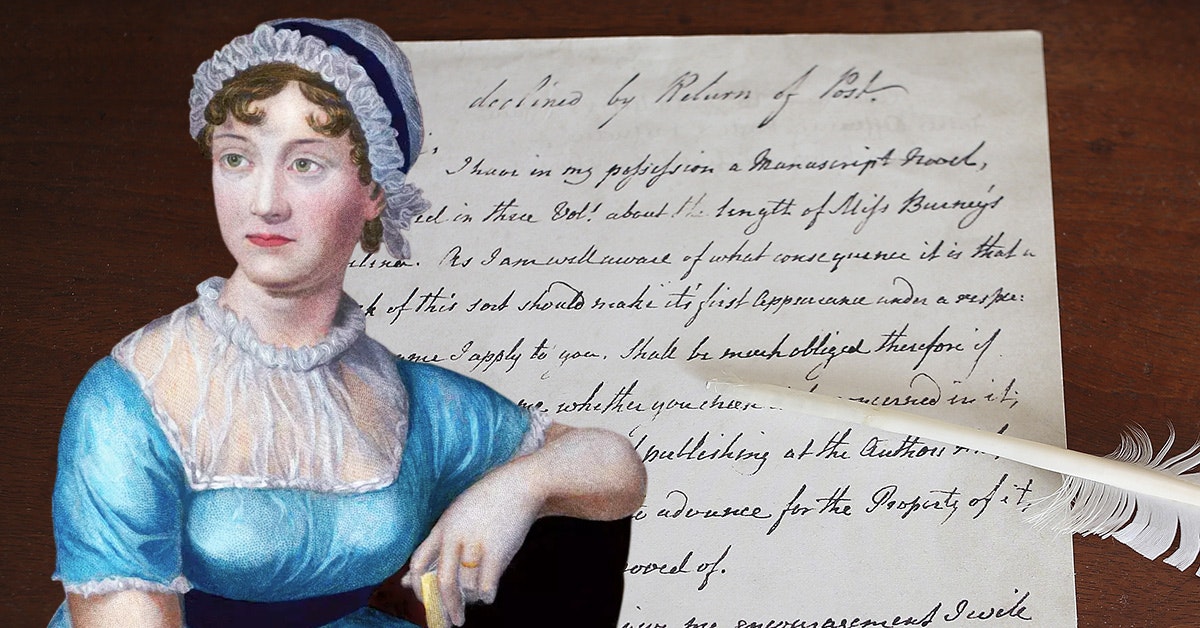 declined by Return of Post.
I have in my possession a Manuscript Novel,
in three Vol.s about the length of Miss Burney's
As I am well aware of what consequence it is that a
of this sort should make it's first appearance under a respec:
I apply to you. Shall be much obliged therefore if
whether you choose in it;
publishing at the Author's
advance for the Property of it,
of.
me encouragement I will